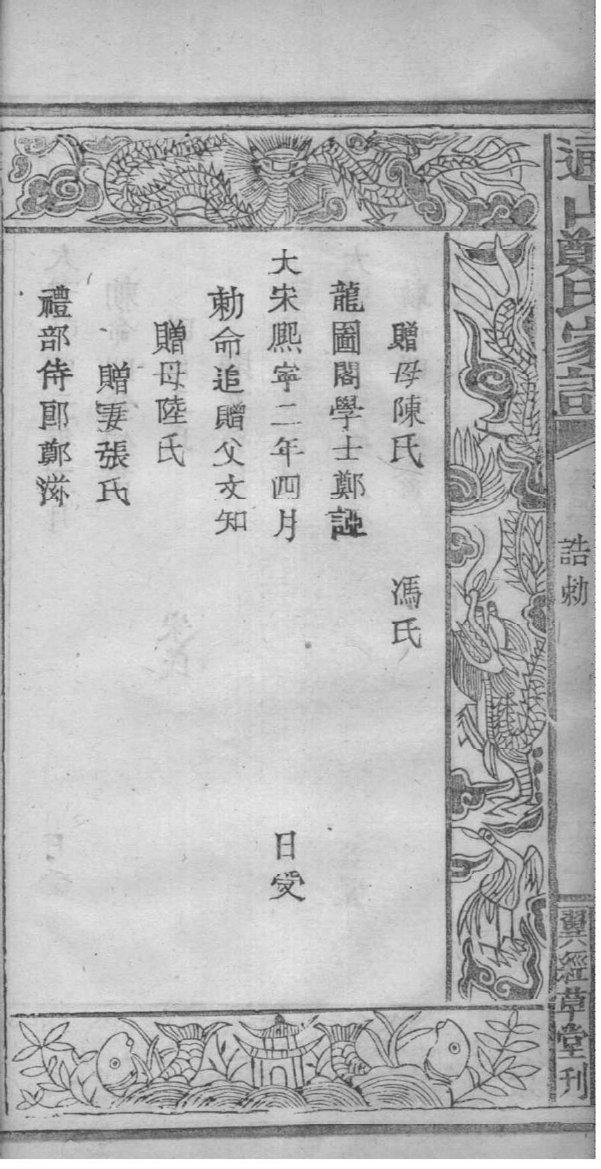 贈母陳氏 馮氏
龍圖閣學士鄭
大宋熙寧二年四月 日受
勅命追贈父文知
贈母陸氏
贈妻張氏
禮部侍郎鄭滋
山鄭氏家譜
誥勅
翼經草堂刊